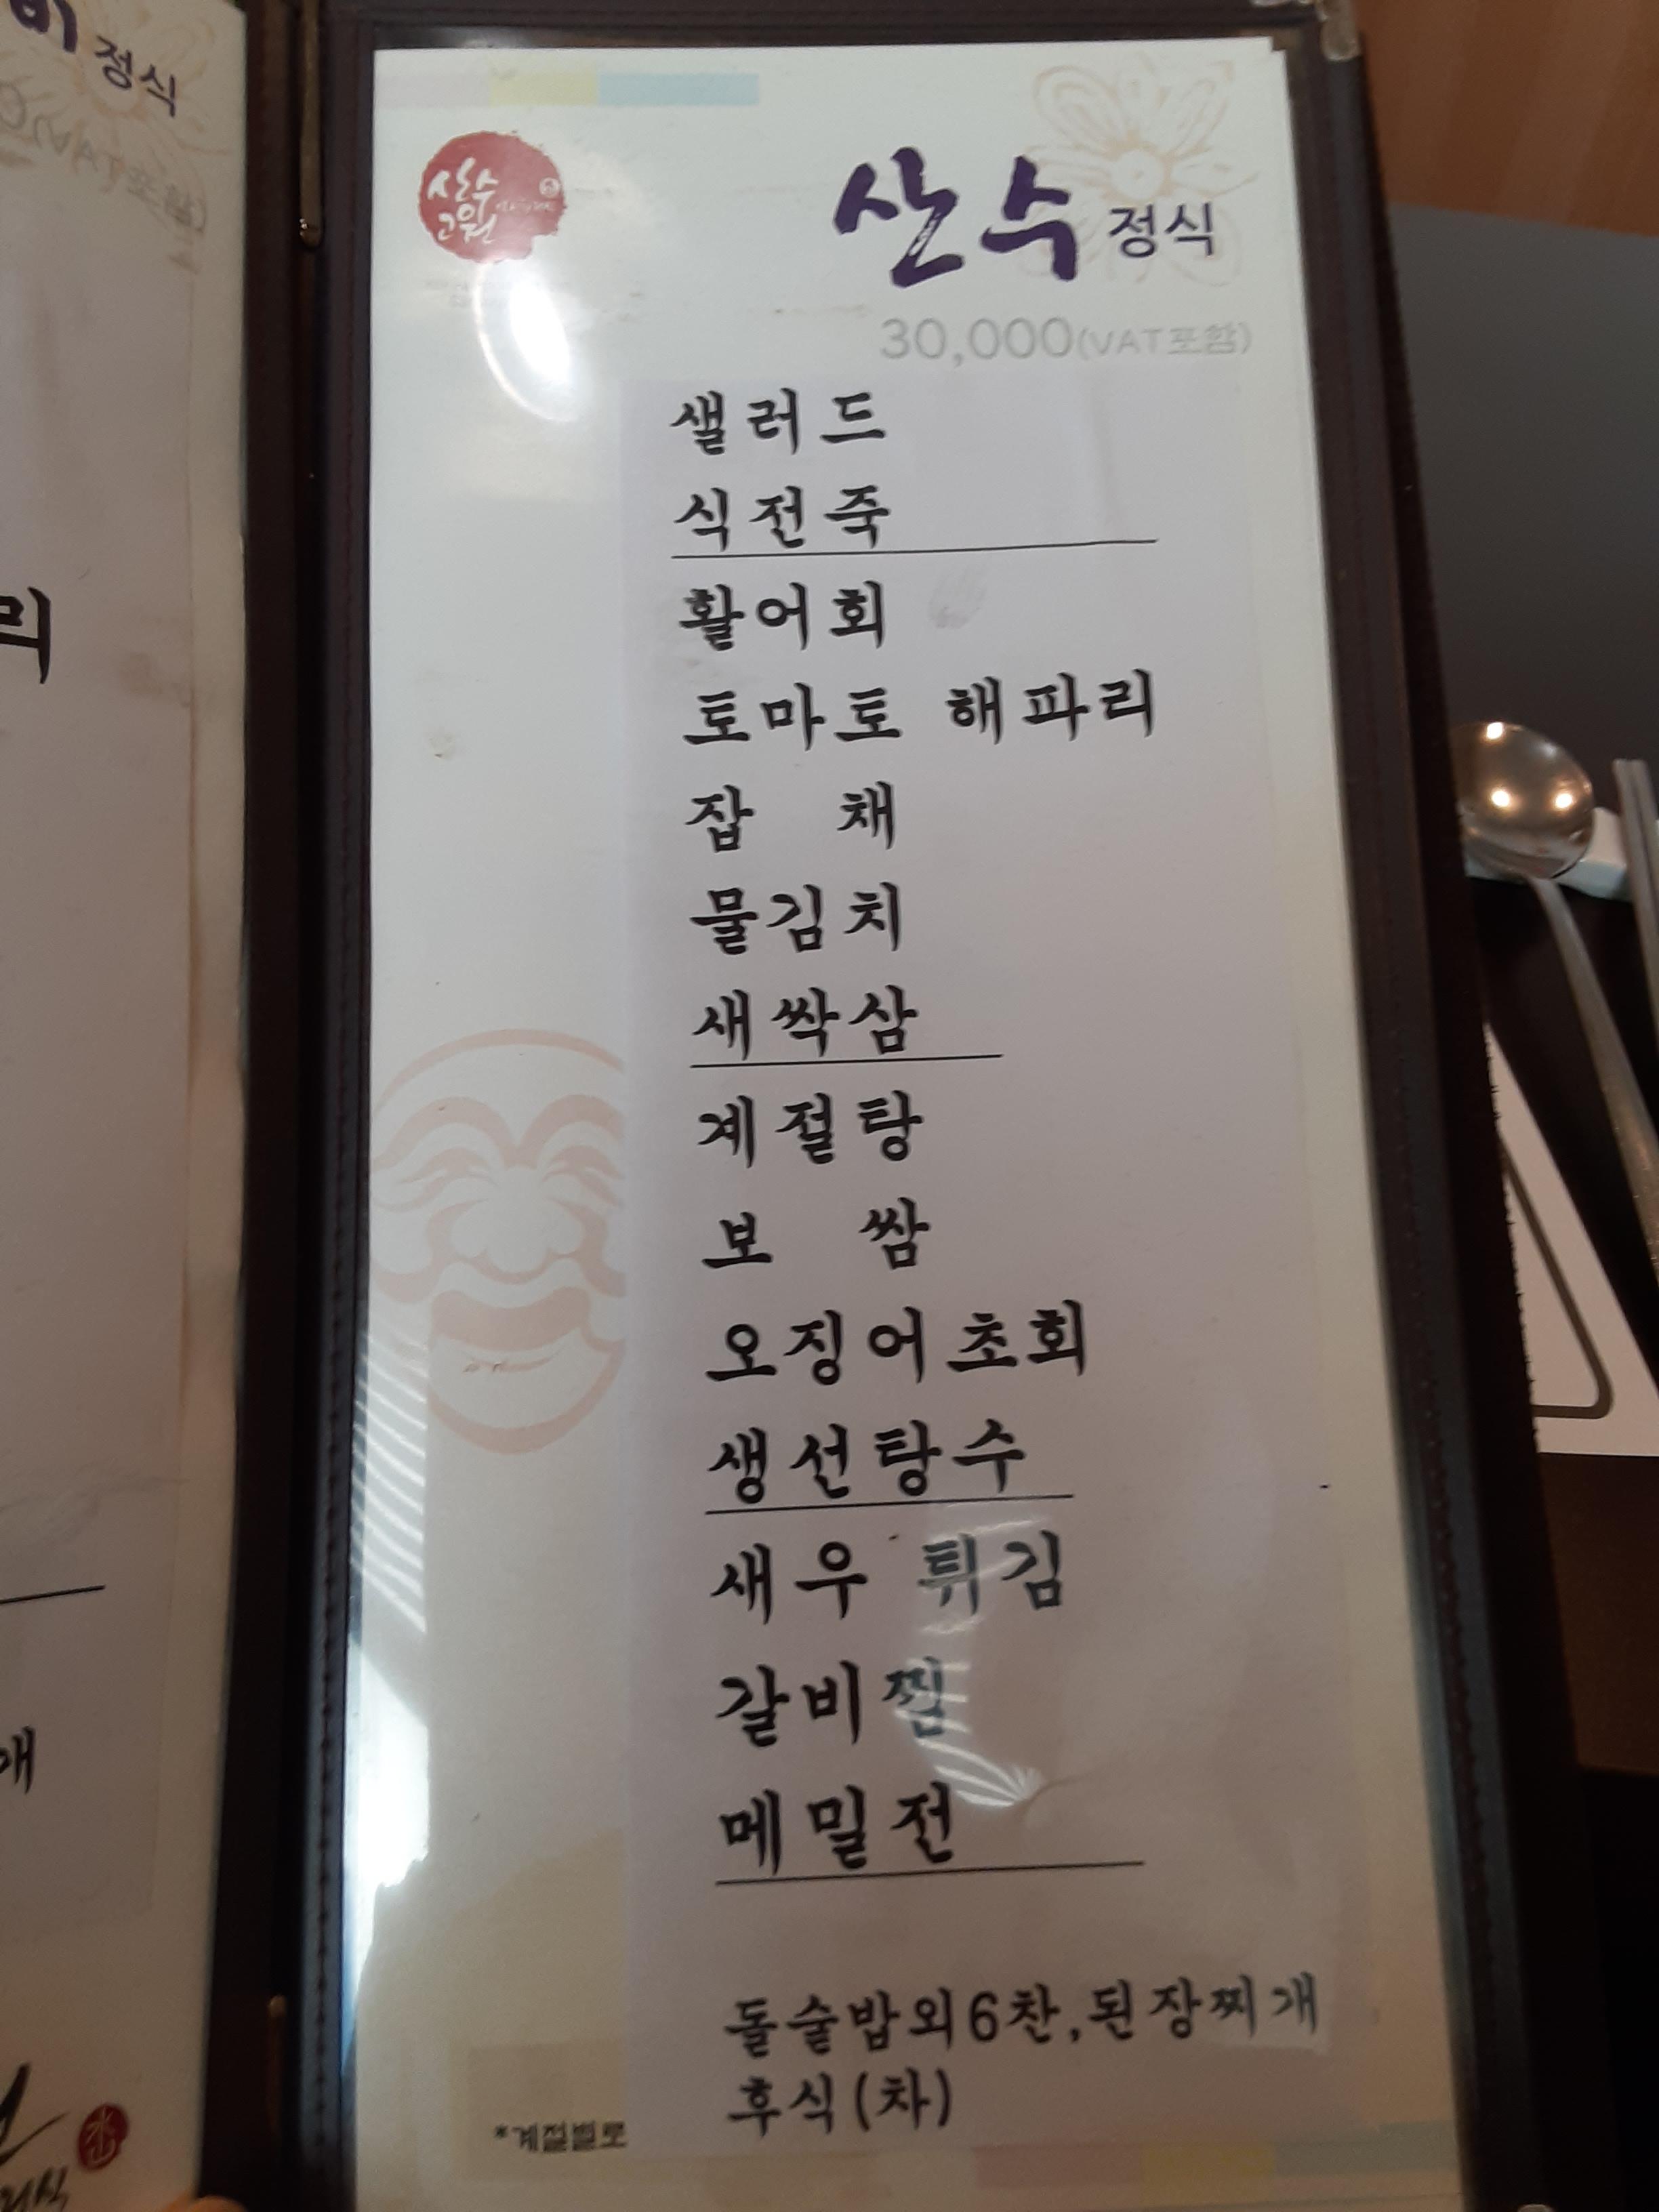 정식
(VAT포함)
리
개
산수
고원
산수 정식
30,000(VAT포함)
샐러드
식전죽
활어회
토마토 해파리
잡 채
물김치
새싹삼
계절탕
보 쌈
오징어초회
생선탕수
새우 튀김
갈비찜
메밀전
돌솥밥외6찬,된장찌개
후식(차)
*계절별로